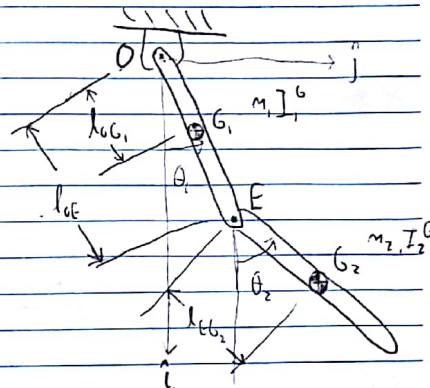 O ĵ
G₁ m₁ I₁ᴳ
l_OG₁
θ₁
l_OE E
m₂, I₂ᴳ
G₂
θ₂
l_EG₂
î